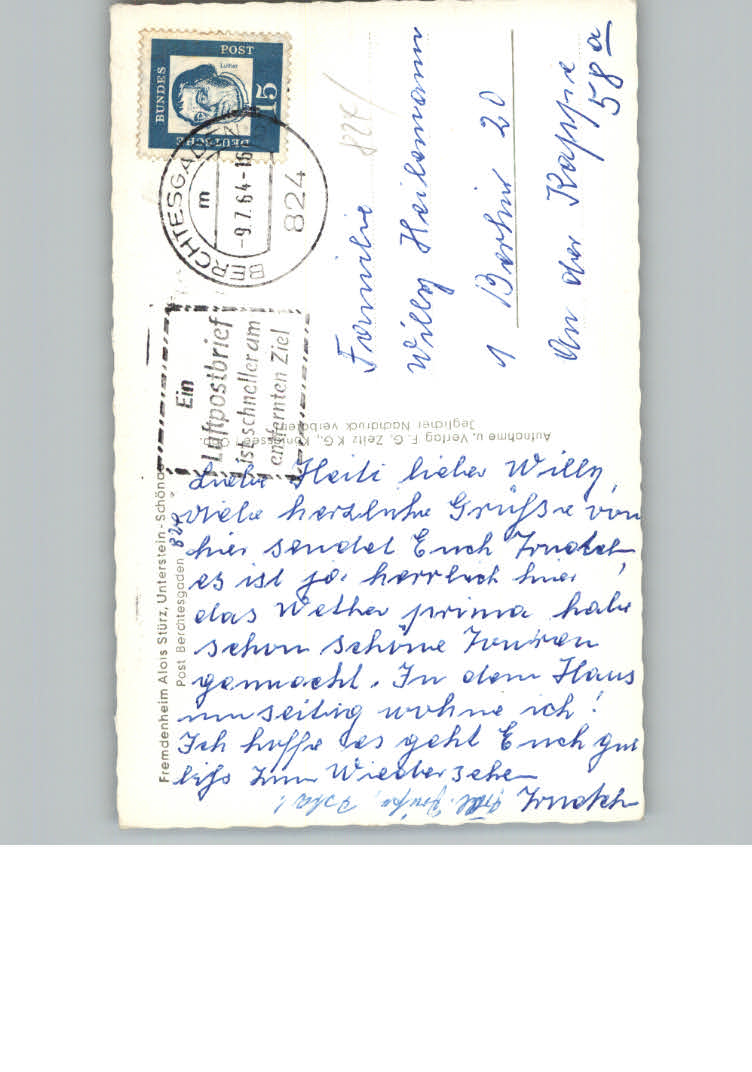 Fremdenheim Alois Stürz, Unterstein-Schönau
Post Berchtesgaden 824
Aufnahme u. Verlag F. G. Zeitz KG., Königssee/Obb.
Jeglicher Nachdruck verboten
DEUTSCHE
BUNDES
POST
Luther
15
BERCHTESGADEN
m
-9.7.64-16
824
Ein
Luftpostbrief
ist schneller am
entfernten Ziel
824
Familie
Willy Heilemann
1 Berlin 20
An der Kappe
58a
Liebe Heiti lieber Willy,
viele herzliche Grüße von
hier sendet Euch
es ist ja herrlich hier,
das Wetter prima habe
schon schöne Touren
gemacht. In dem Haus
umseitig wohne ich!
Ich hoffe es geht Euch gut
bis zum Wiedersehen